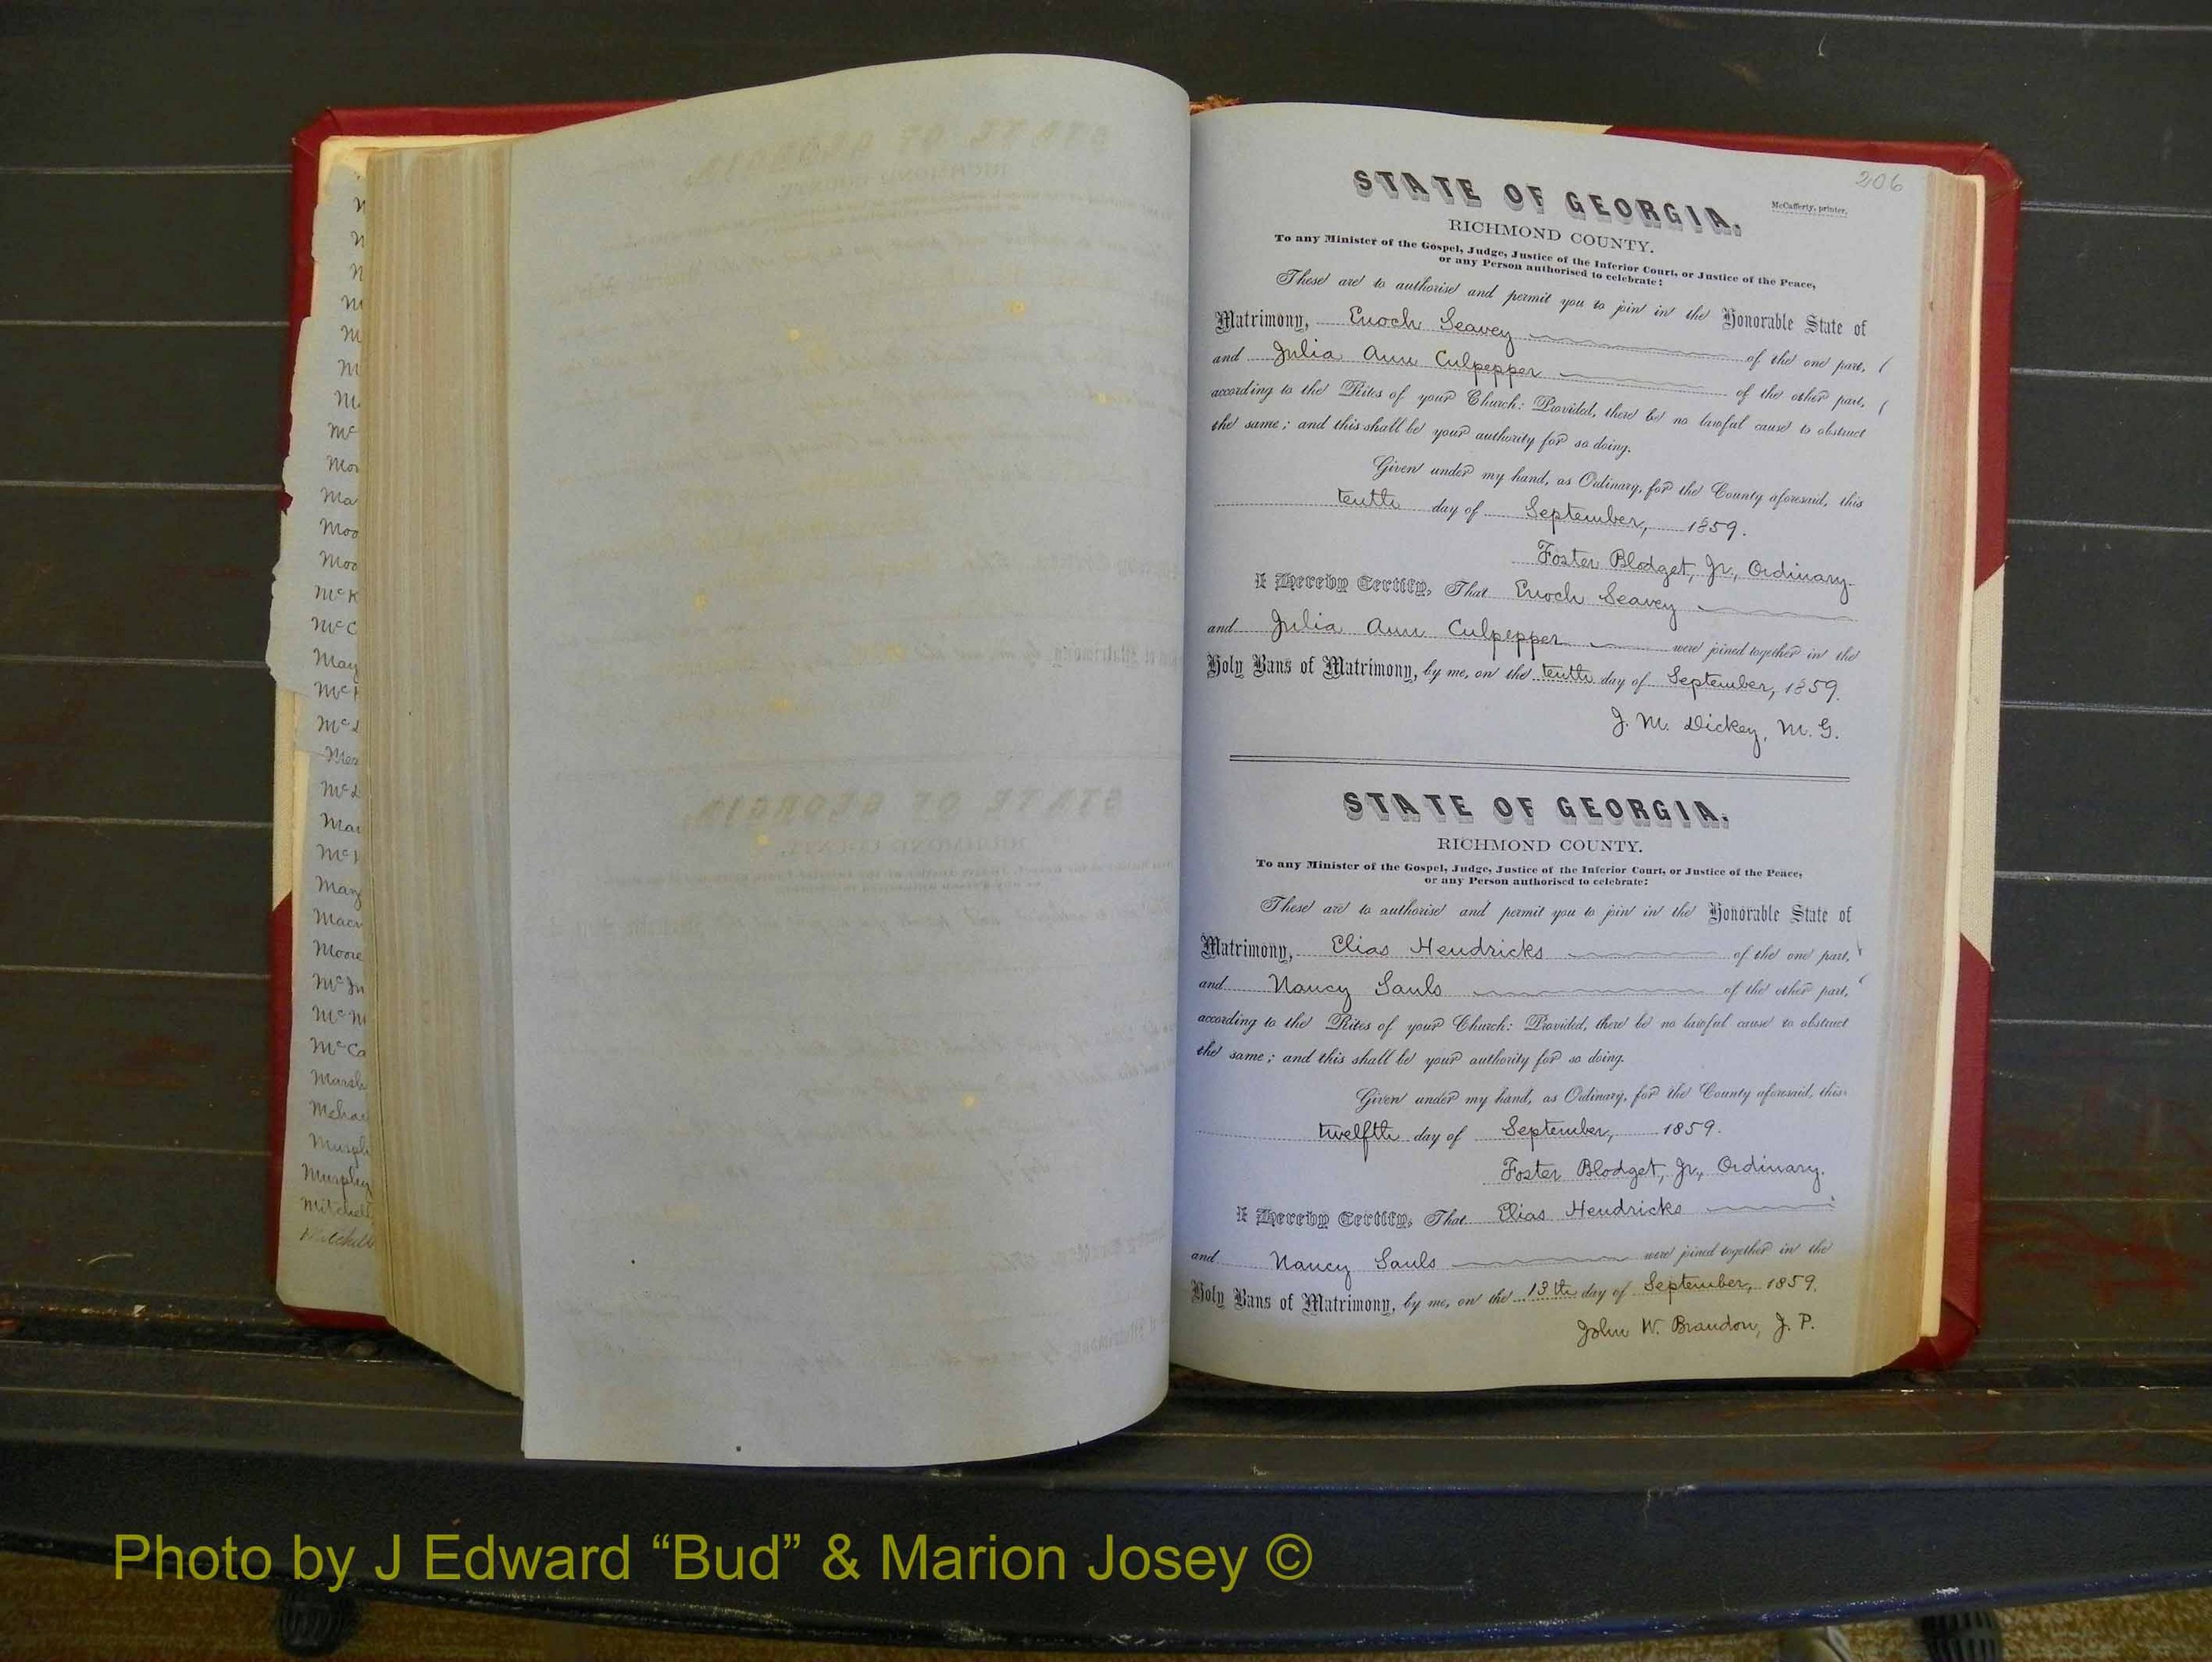 206
STATE OF GEORGIA.
McCafferty, printer.
RICHMOND COUNTY.
To any Minister of the Gospel, Judge, Justice of the Inferior Court, or Justice of the Peace,
or any Person authorised to celebrate:
These are to authorise and permit you to join in the Honorable State of
Matrimony, Enoch Seavey of the one part,
and Julia Ann Culpepper of the other part,
according to the Rites of your Church: Provided, there be no lawful cause to obstruct
the same; and this shall be your authority for so doing.
Given under my hand, as Ordinary, for the County aforesaid, this
tenth day of September, 1859.
Foster Blodget, Jr., Ordinary.
I Hereby Certify, That Enoch Seavey
and Julia Ann Culpepper were joined together in the
Holy Bans of Matrimony, by me, on the tenth day of September, 1859.
J. M. Dickey, M. G.
STATE OF GEORGIA.
RICHMOND COUNTY.
To any Minister of the Gospel, Judge, Justice of the Inferior Court, or Justice of the Peace,
or any Person authorised to celebrate:
These are to authorise and permit you to join in the Honorable State of
Matrimony, Elias Hendricks of the one part,
and Nancy Sauls of the other part,
according to the Rites of your Church: Provided, there be no lawful cause to obstruct
the same; and this shall be your authority for so doing.
Given under my hand, as Ordinary, for the County aforesaid, this
twelfth day of September, 1859.
Foster Blodget, Jr., Ordinary.
I Hereby Certify, That Elias Hendricks
and Nancy Sauls were joined together in the
Holy Bans of Matrimony, by me, on the 13th day of September, 1859.
John W. Brandon, J. P.
Photo by J Edward “Bud” & Marion Josey ©